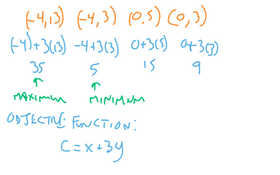 (-4,13) (-4,3) (0,5) (0,3)
(-4)+3(13) -4+3(3) 0+3(5) 0+3(3)
35 5 15 9
MAXIMUM MINIMUM
OBJECTIVE FUNCTION:
C=x+3y